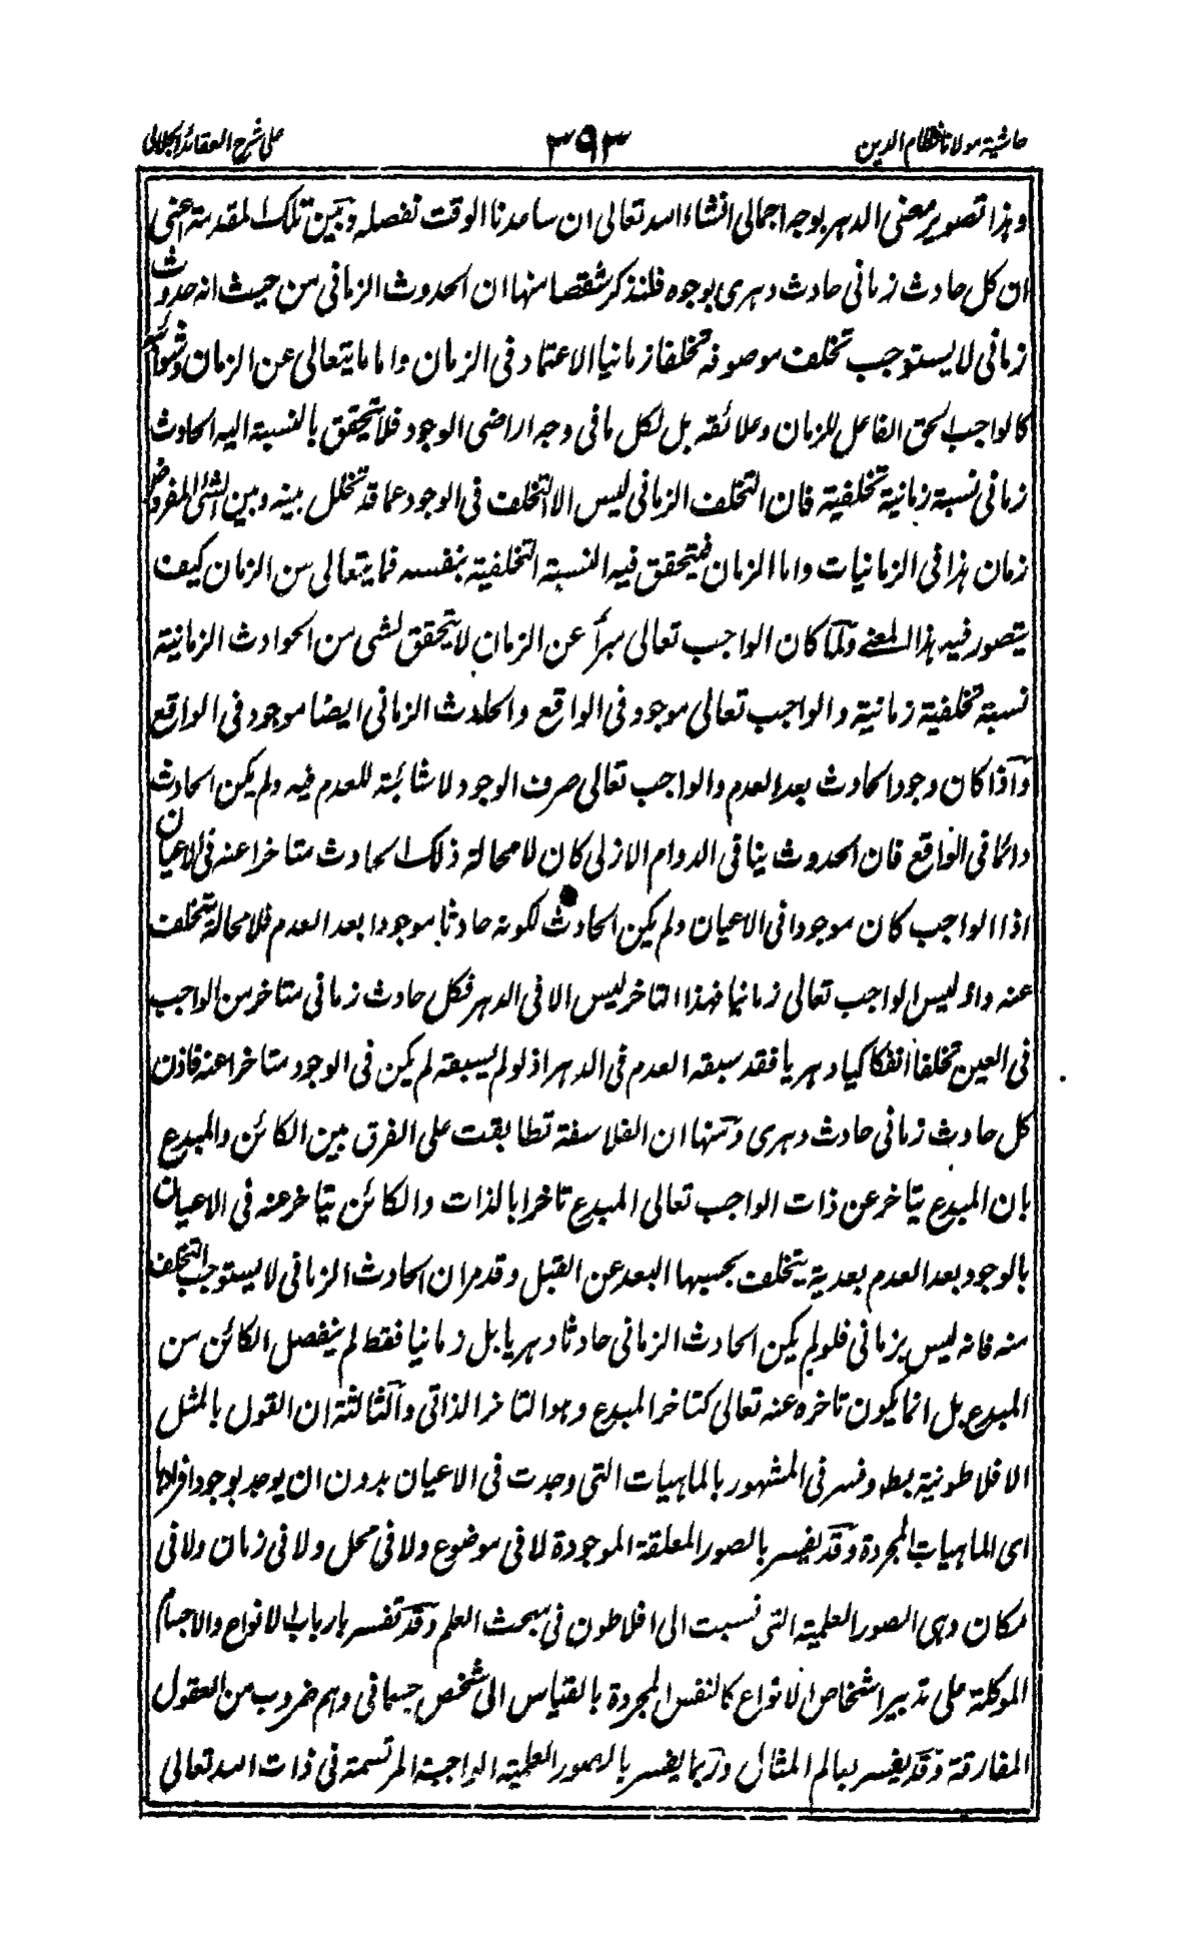 حاشیة مولانا نظام الدین ٣٩٣ علی شرح العقائد الجلالی
وہذا تصویر معنی الدہر بوجہ اجمالی انشاء اللہ تعالی ان ساعدنا الوقت نفصلہ ونبین تلک المقدمۃ اعنی
ان کل حادث زمانی حادث دہری بوجوہ فلنذکر شقصا منہا ان الحدوث الزمانی من حیث انہ حدوث
زمانی لا یستوجب تخلف موصوفہ تخلفا زمانیا الا عما دفی الزمان واما ما یتعالی عن الزمان
کالواجب الحق الفاعل للزمان وعلائقہ بل لکل ما فی وجہ اراضی الوجود فلا تتحقق بالنسبۃ الیہ الحادث
زمانی نسبۃ زمانیۃ تخلفیۃ فان التخلف الزمانی لیس الا التخلف فی الوجود عما قد تخلل بینہ وبین الشئ المفروض
زمان ہذا فی الزمانیات واما الزمان فیتحقق فیہ النسبۃ التخلفیۃ بنفسہ فما یتعالی من الزمان کیف
یتصور فیہ ہذا المعنے ولما کان الواجب تعالی مبرأ عن الزمان لا یتحقق لشی من الحوادث الزمانیۃ
نسبۃ تخلفیۃ زمانیۃ والواجب تعالی موجود فی الواقع والحادث الزمانی ایضا موجود فی الواقع
واذا کان وجود الحادث بعد العدم والواجب تعالی صرف الوجود لا شائبۃ للعدم فیہ ولم یکن الحادث
دائما فی الواقع فان الحدوث ینافی الدوام الازلی کان لا محالۃ ذلک الحادث متاخرا عنہ فی الاعیان
اذا الواجب کان موجودا فی الاعیان ولم یکن الحادث لکونہ حادثا موجودا بعد العدم فلا محالۃ یتخلف
عنہ واذ لیس الواجب تعالی زمانیا فہذا التاخر لیس الا فی الدہر فکل حادث زمانی متاخر من الواجب
فی العین تخلفا انفکاکیا دہریا فقد سبقہ العدم فی الدہر اذ لو لم یسبقہ لم یکن فی الوجود متاخرا عنہ فاذن
کل حادث زمانی حادث دہری ومنہا ان الفلاسفۃ تطابقت علی الفرق بین الکائن والمبدع
بان المبدع یتاخر عن ذات الواجب تعالی المبدع تاخرا بالذات والکائن یتاخر عنہ فی الاعیان
بالوجود بعد العدم بعدیۃ یتخلف بحسبہا البعد عن القبل وقد مر ان الحادث الزمانی لا یستوجب التخلف
منہ فانہ لیس بزمانی فلو لم یکن الحادث الزمانی حادثا دہریا بل زمانیا فقط لم ینفصل الکائن من
المبدع بل انما یکون تاخرہ عنہ تعالی کتاخر المبدع وہو التاخر الذاتی والثالثۃ ان القول بالمثل
الافلاطونیۃ بط وفسر فی المشہور بالماہیات التی وجدت فی الاعیان بدون ان یوجد بوجود افرادہا
ای الماہیات المجردۃ وقد یفسر بالصور المعلقۃ الموجودۃ لا فی موضوع ولا فی محل ولا فی زمان ولا فی
مکان وہی الصور العلمیۃ التی نسبت الی افلاطون فی مبحث العلم وقد تفسر بارباب الانواع والاجسام
الموکلۃ علی تدبیر اشخاص الانواع کالنفس المجردۃ بالقیاس الی شخص جسمانی وہم ضروب من العقول
المفارقۃ وقد یفسر بعالم المثال وربما یفسر بالصور العلمیۃ الواجبۃ المرتسمۃ فی ذات اللہ تعالی